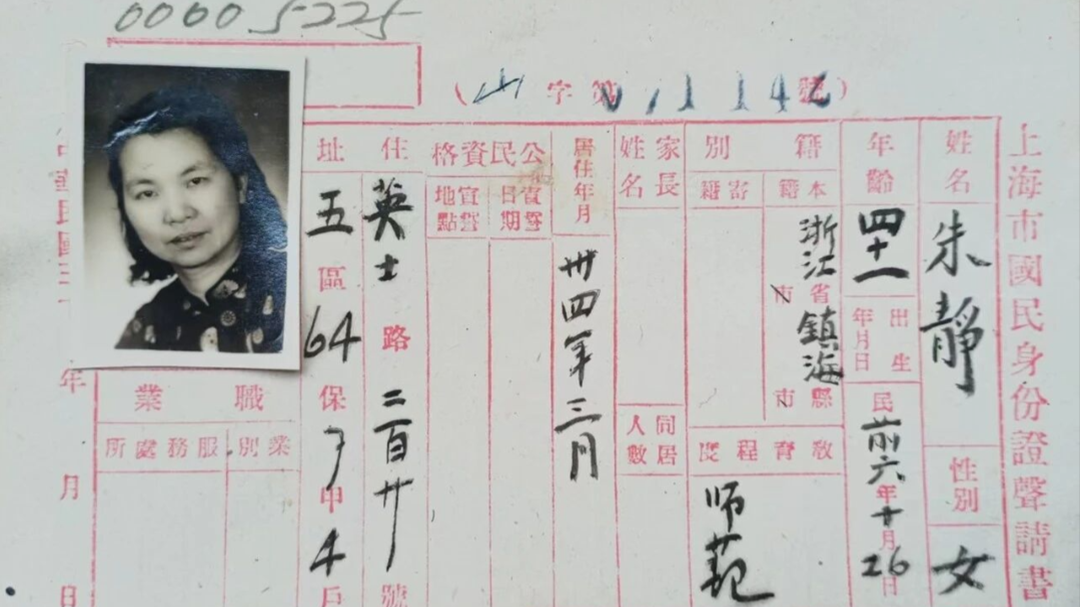 00005225
(山字第011142號)
上海市國民身份證聲請書
姓名
朱靜
性別
女
年齡
四十一
出生年月日
民前六年十月26日
籍別
本籍
浙江省市鎮海縣市
寄籍
教育程度
师范
家長姓名
同居人數
居住年月
卅四年三月
公民資格
宣誓日期
宣誓地點
住址
英士路二百廿號
五區64保7甲4戶
職業
業別
服務處所
中華民國三十
年月日